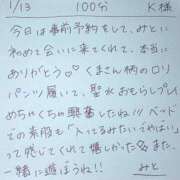 1/13 100分 K様
今日は事前予約をして、みとに
初めて会いに来てくれて、本当に
ありがとう♡♡くまさん柄のロリ
パンツ履いて、聖水おもらしプレイ
めちゃくちゃ興奮したね!!!ベッド
での素股も「入ってるみたいでやばい」
って感じてくれて嬉しかったׂ また、
一緒に遊ぼうね!! みと